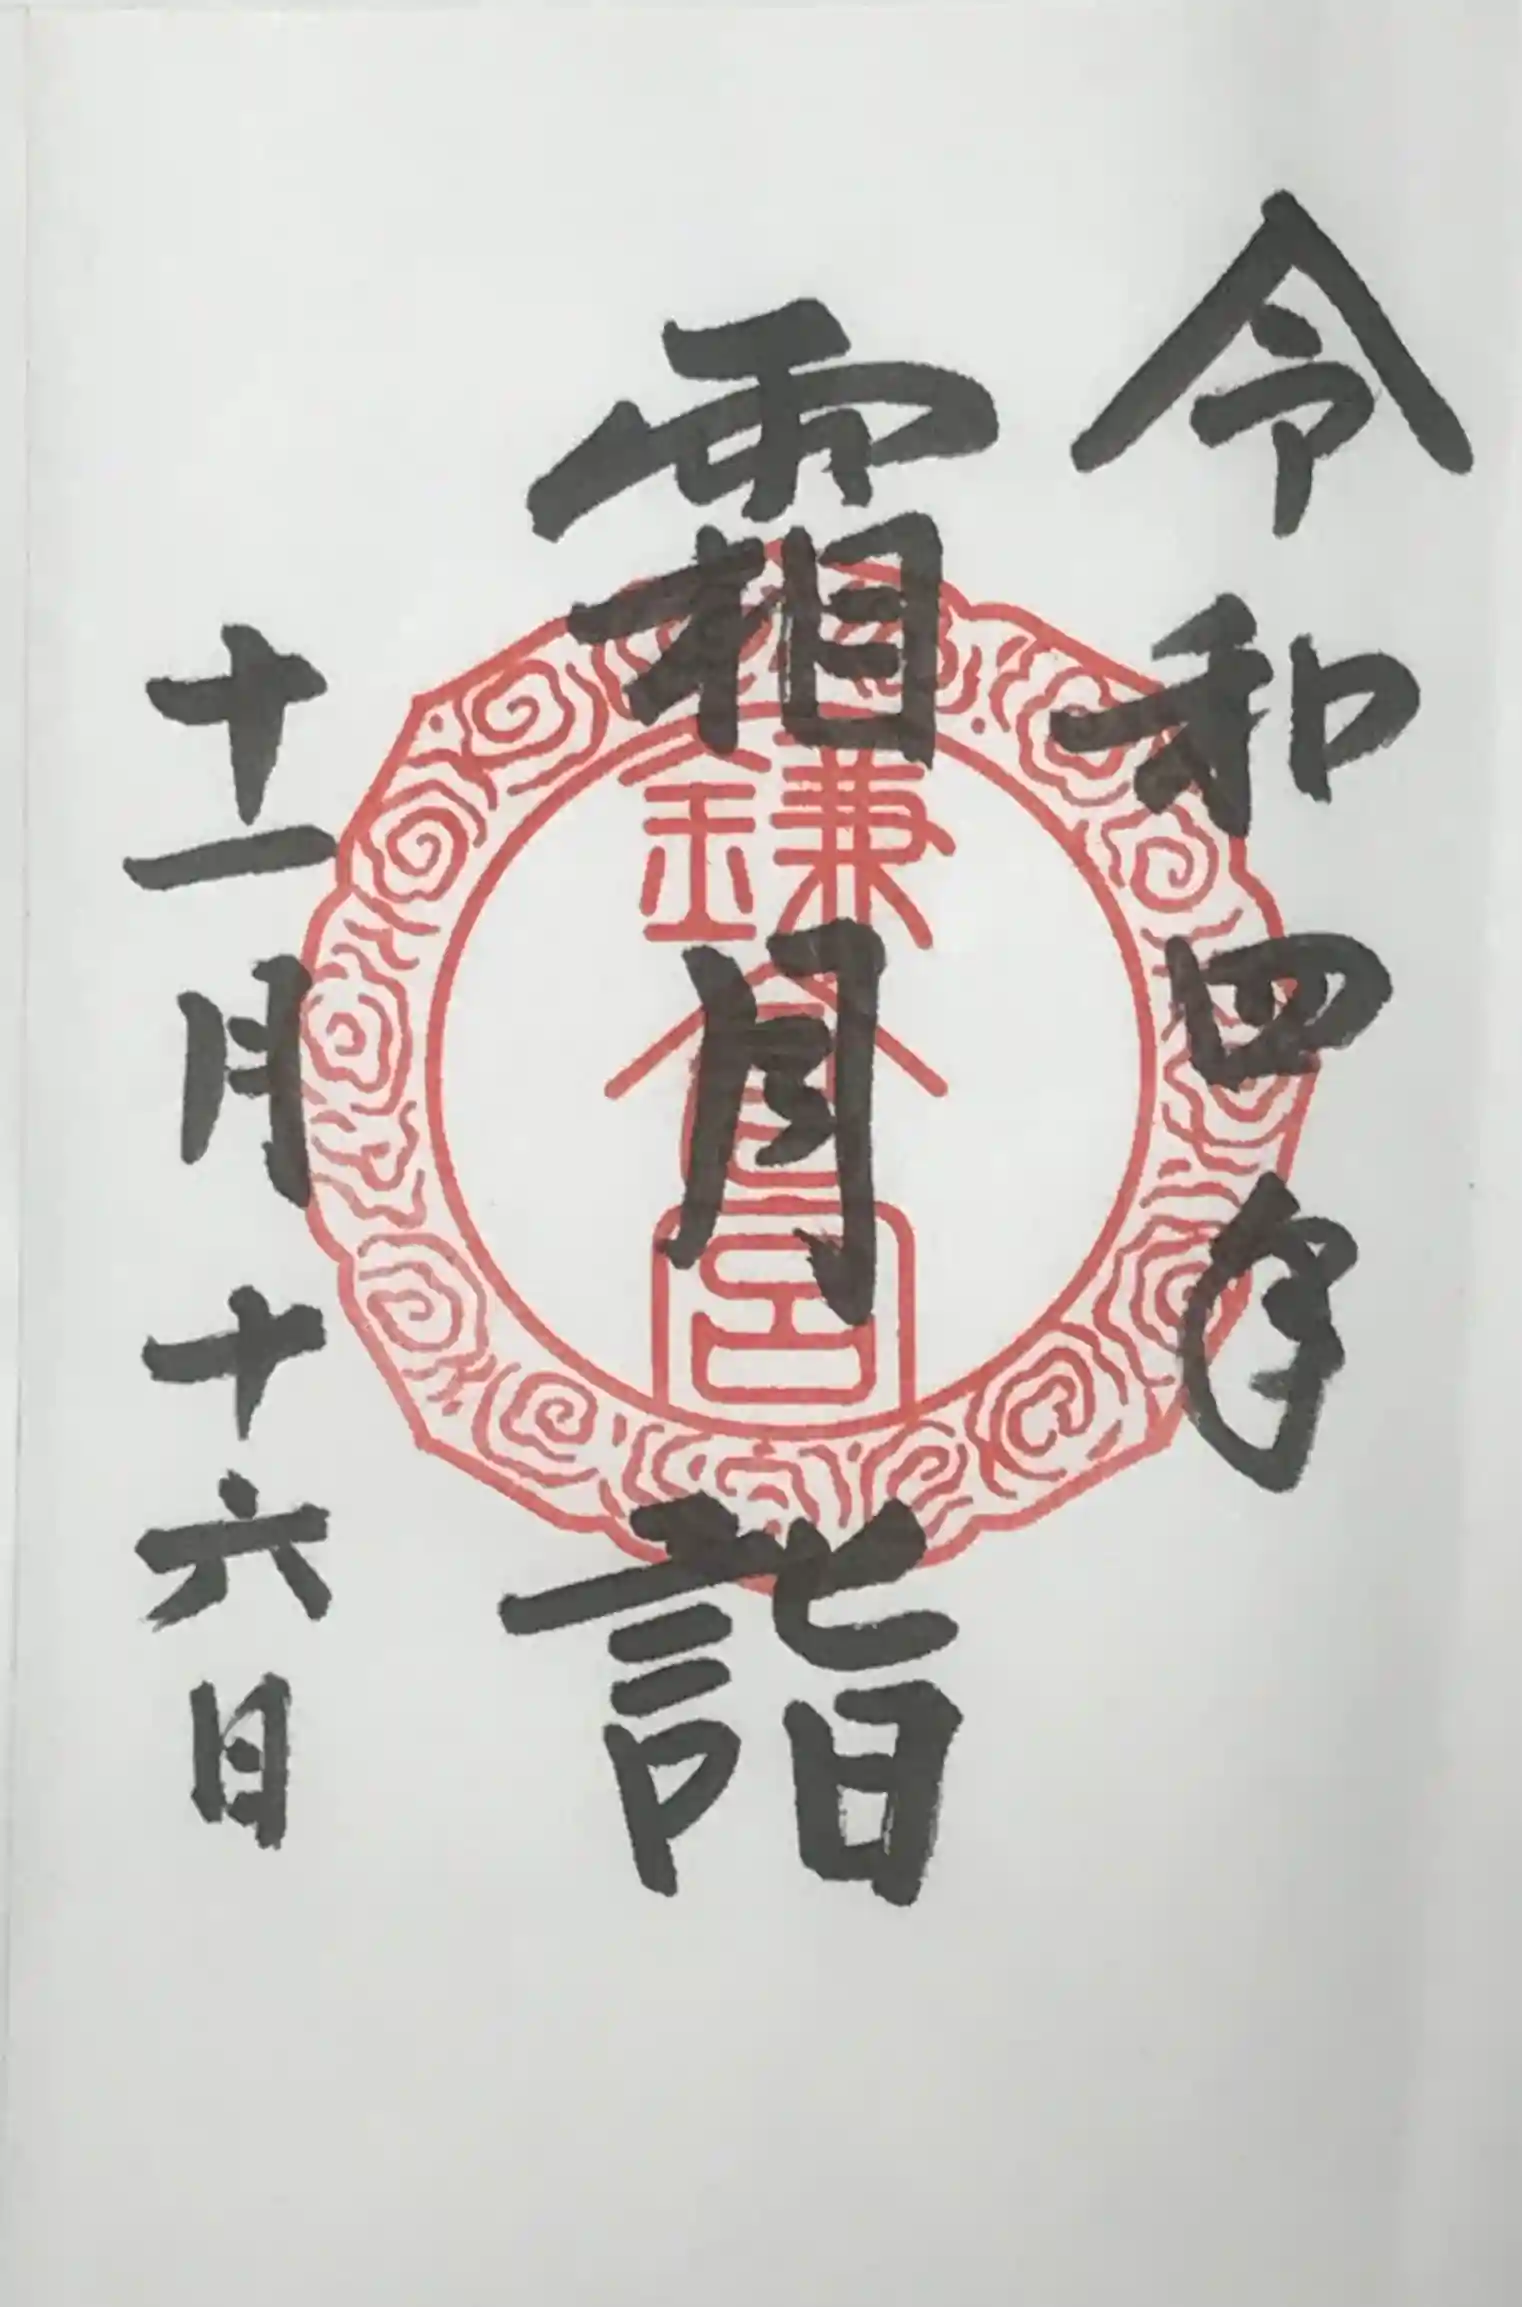 令和四年
霜月詣
十一月十六日
鎌倉宮